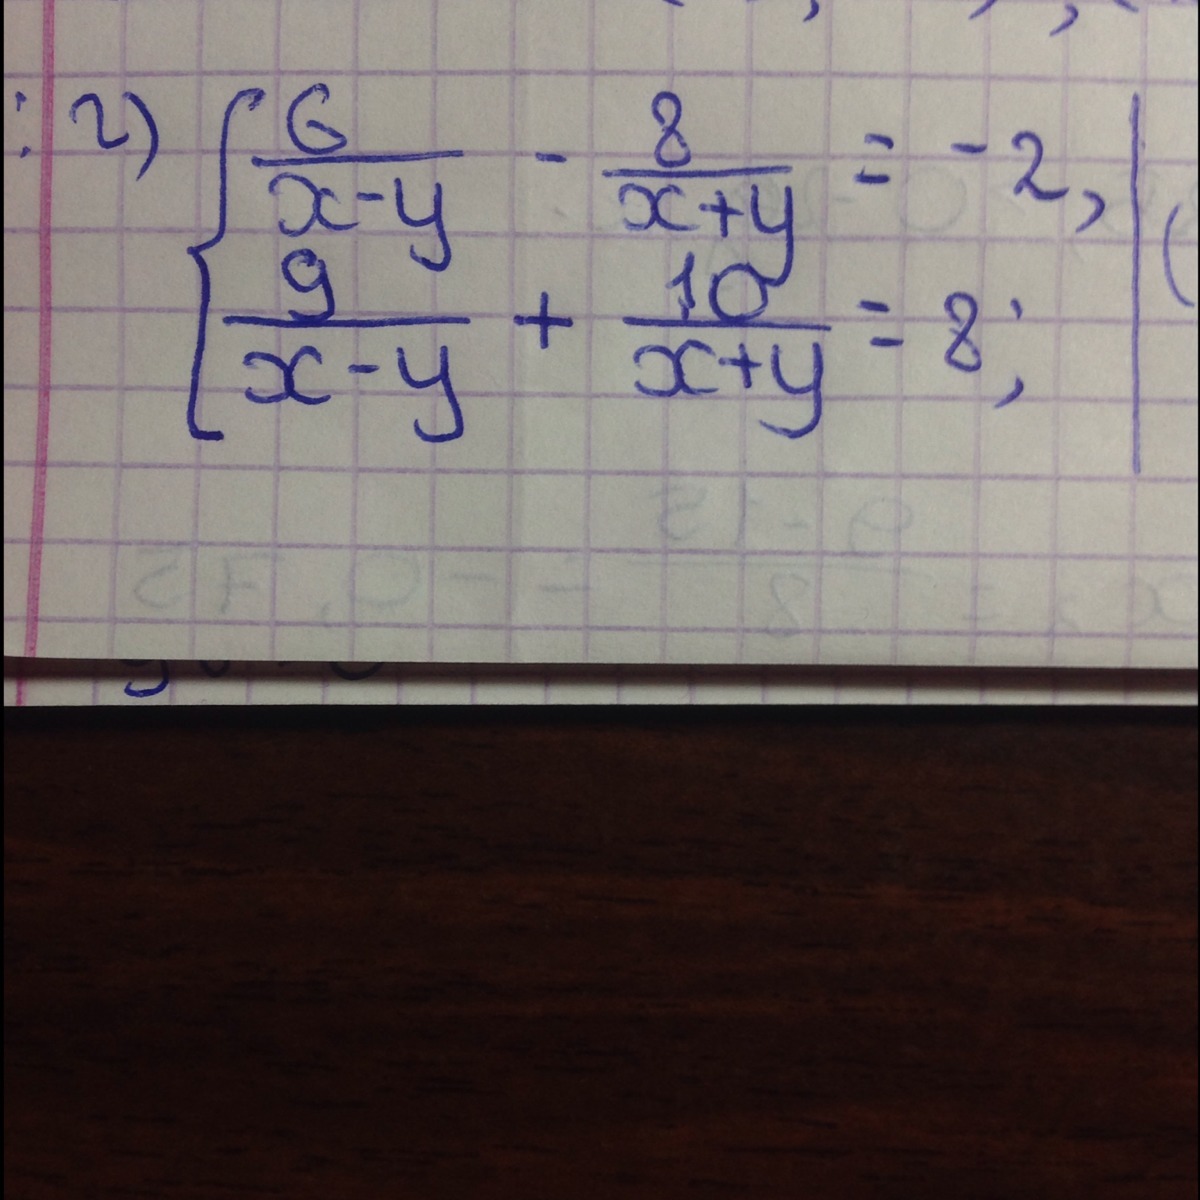 : 2) { 6/(x-y) - 8/(x+y) = -2,
9/(x-y) + 10/(x+y) = 8;